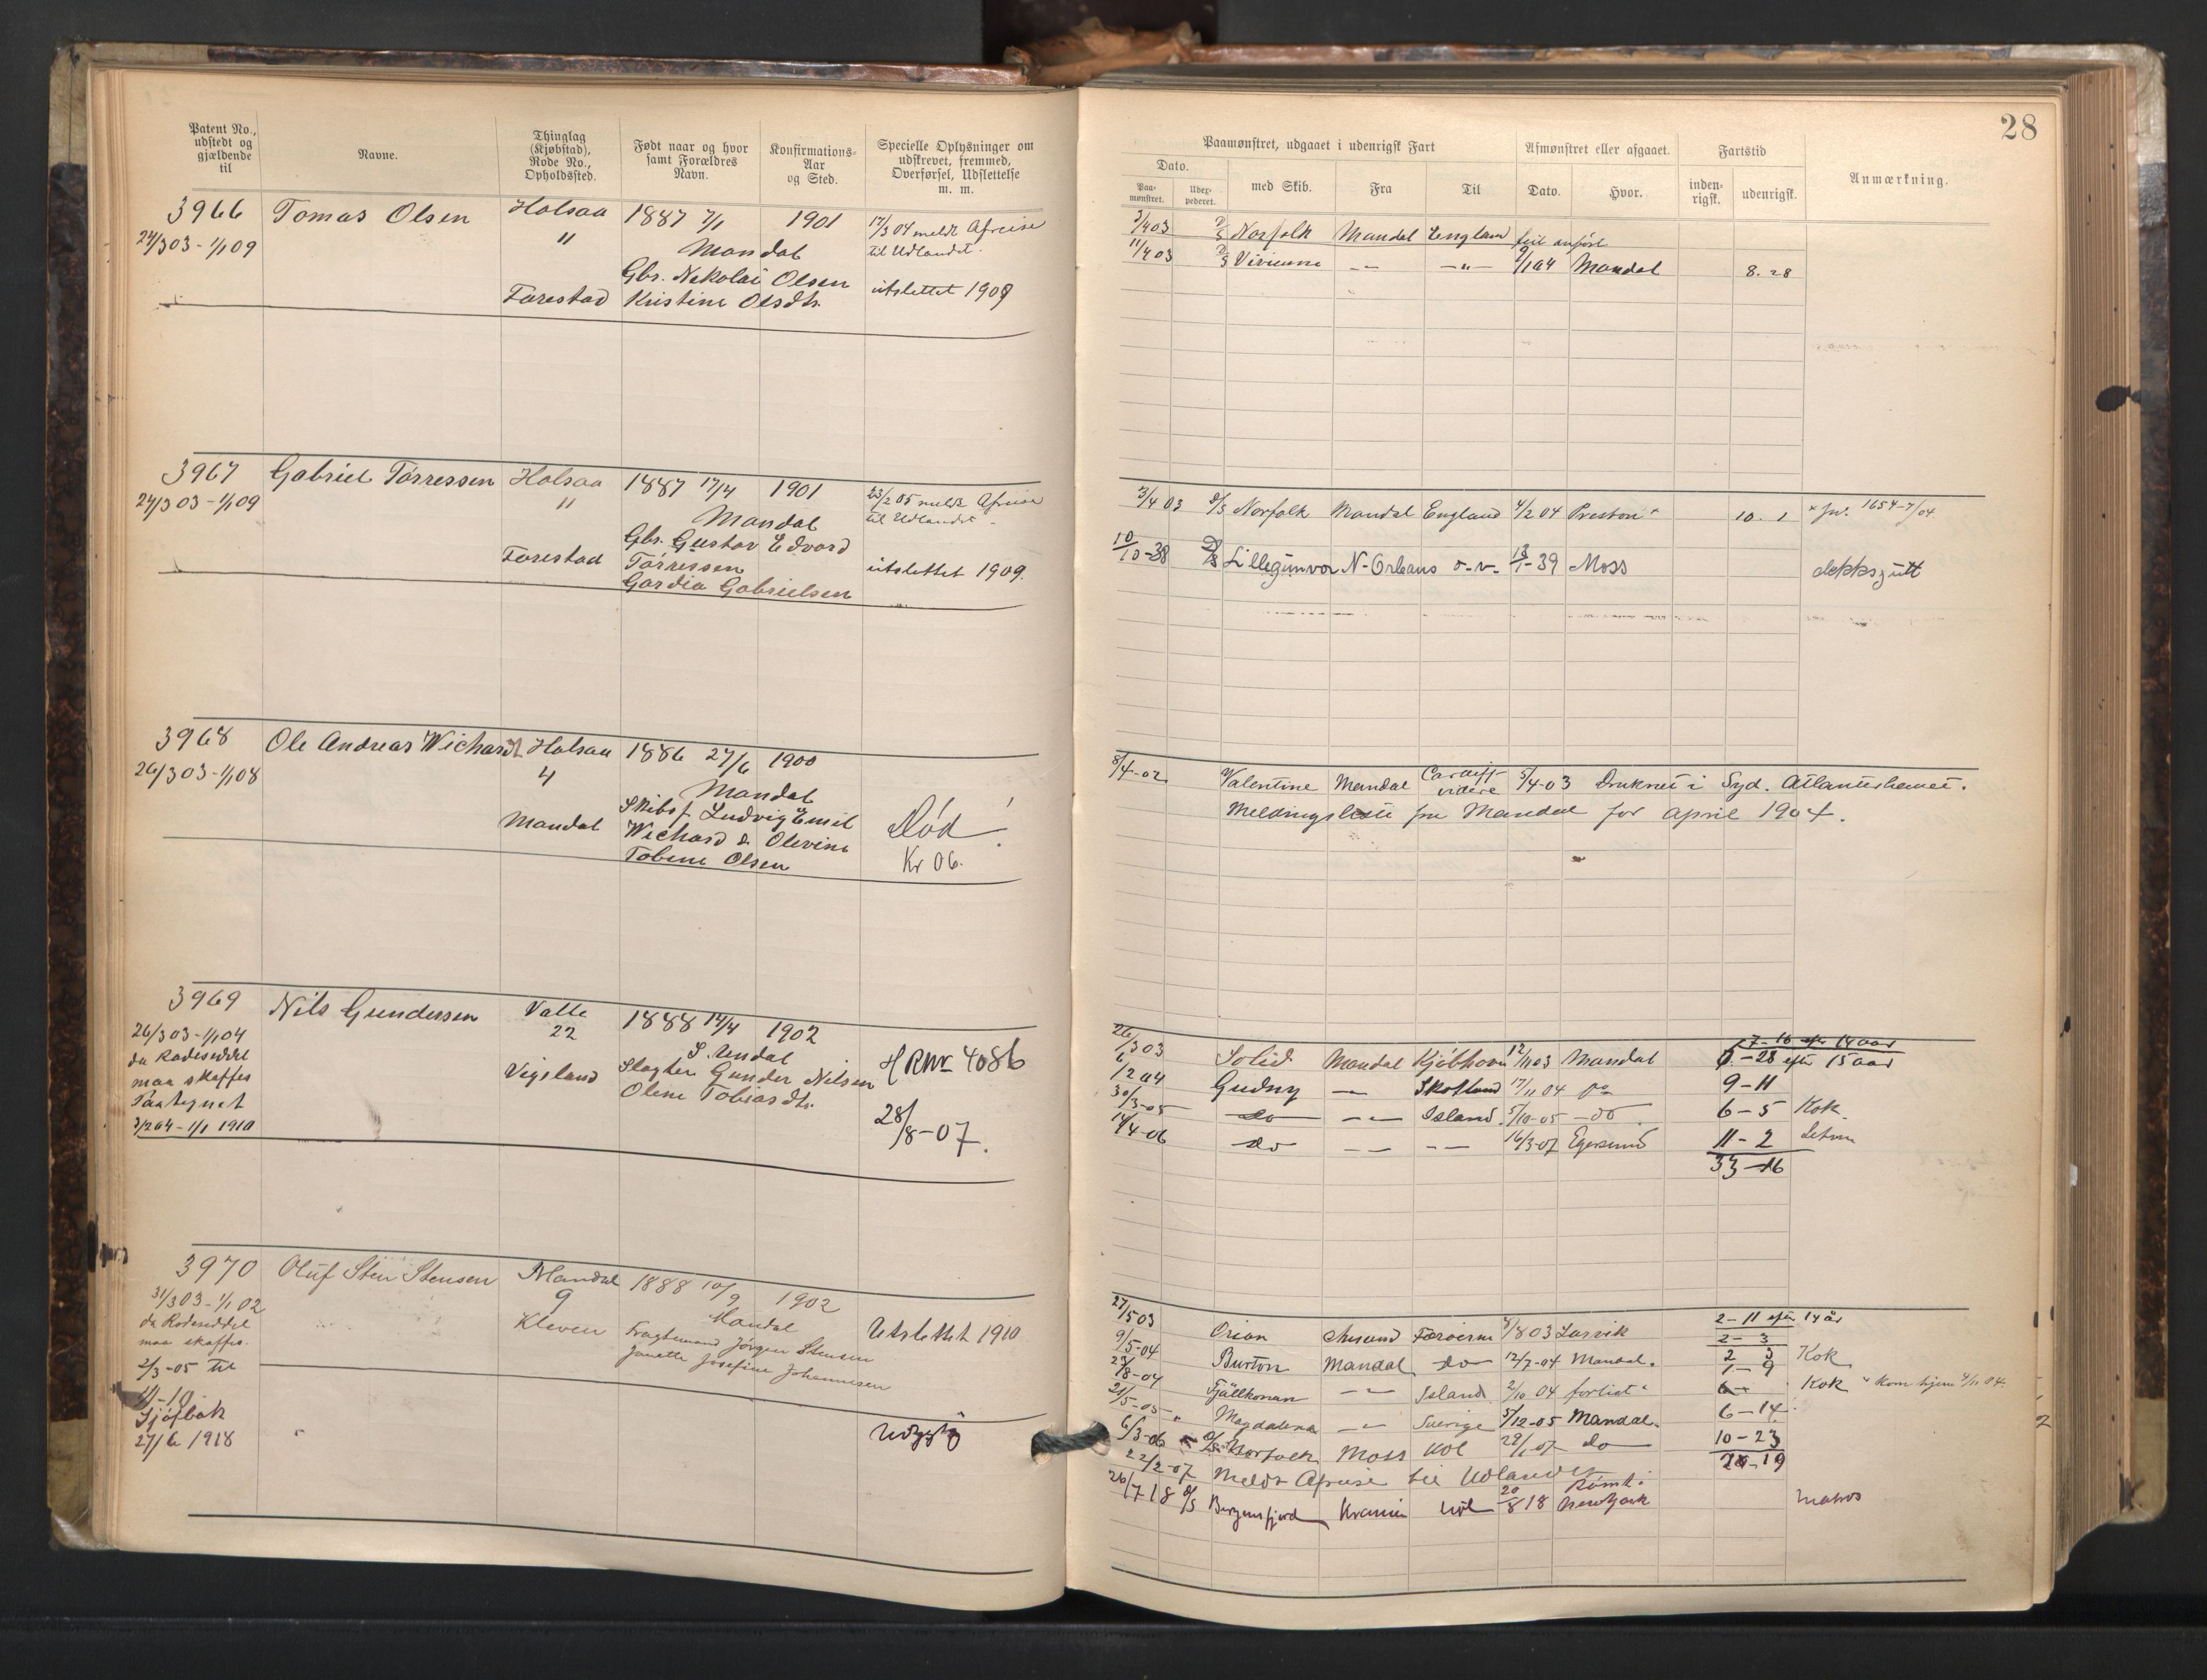 28
Patent No., udstedt og gjældende til
Navne.
Thinglag (Kjøbstad), Rode No., Opholdssted.
Født naar og hvor samt Forældres Navn.
Konfirmations-Aar og Sted.
Specielle Oplysninger om udskrevet, fremmed, Overførsel, Udslettelse m. m.
Paamønstret, udgaaet i udenrigsk Fart
Afmønstret eller afgaaet.
Fartstid
Anmærkning.
Dato.
Paa-mønstret.
med Skib.
Fra
Til
Dato.
Hvor.
inden-rigsk.
udenrigsk.
3966 Tomas Olsen Halsaa 1887 7/1 1901 17/3 04 meldt Afreise
24/3 03 - 1/1 09 " Mandal til Udlandet.
Gbr. Nikolai Olsen
Farestad Kristine Olsdtr. utslettet 1909
3/4 03 D/S Norfolk Mandal England feil anført
11/4 03 D/S Vivienne — — — " — 9/1 04 Mandal 8. 28
3967 Gabriel Tørressen Halsaa 1887 17/4 1901 23/2 05 meldt Afreise
24/3 03 - 1/1 09 " Mandal til Udlandet
Gbr. Gustav Edvard
Farestad Tørressen utslettet 1909.
Gardia Gabrielsen
3/4 03 D/S Norfolk Mandal England 4/2 04 Preston × 10. 1 × Jnr. 1654 - 7/04
10/10-38 D/S Lillegunvor N-Orleans o-v- 13/1-39 Moss dekksgutt
3968 Ole Andreas Wichard Halsaa 1886 27/6 1900
26/3 03 - 1/1 08 4 Mandal
Skibsf. Ludvig Emil
Mandal Wichard & Olevine Død!
Tobine Olsen Kr 06.
8/4-02 Valentine Mandal Cardiff videre 5/4-03 Druknet i Syd. Atlanterhavet.
Meldingsliste fra Mandal for April 1904.
3969 Nils Gundersen Valle 1888 14/4 1902
26/3 03 - 1/1 04 22 S. Undal
da Rodeseddel Vigeland Slagter Gunder Nilsen H RNr 4086
maa skaffes Olene Tobiasdtr.
Paategnet 28/8-07.
3/2 04 - 1/1 1910
7-16 efter 14 aar
26/3 03 Solid Mandal Kjøbhavn 12/11 03 Mandal 0-28 efter 15 aar
1/2 04 Gudny — Skotland 17/11 04 do 9-11
30/3-05 do — — Island 5/10-05 — do 6-5 Kok.
14/4-06 do — — — — 16/3-07 Egersund 11-2 Letm
33-16
3970 Oluf Sten Stensen Mandal 1888 10/9 1902
31/3 03 - 1/1 02 9 Mandal
da Rodeseddel Kleven Fragtemand Jørgen Stensen Utslettet 1910
maa skaffes. Janette Josefine Johannesen
2/3-05 til
1/1-10
Sjøfbok
27/6 1918
2-11 efter 14 år
27/5 03 Orion Aalesund Færøerne 8/8 03 Larvik 2-3
9/5-04 Burton Mandal do 12/7-04 Mandal. 2 3 Kok
23/8-04 Fjällkonan — — Island 2/10 04 forlist × 1-9 Kok × kom hjem 4/11 04.
21/5-05 Magdalena — Sverige 5/12-05 Mandal. 6-14
6/3-06 D/S Norfolk Moss Kol 29/1-07 do 10-23
22/2-07 Meldt Afreise til Udlandet 20-19
26/7 18 D/S Bergensfjord Kra.nia 20/8 18 Rømt i NewYork Matros